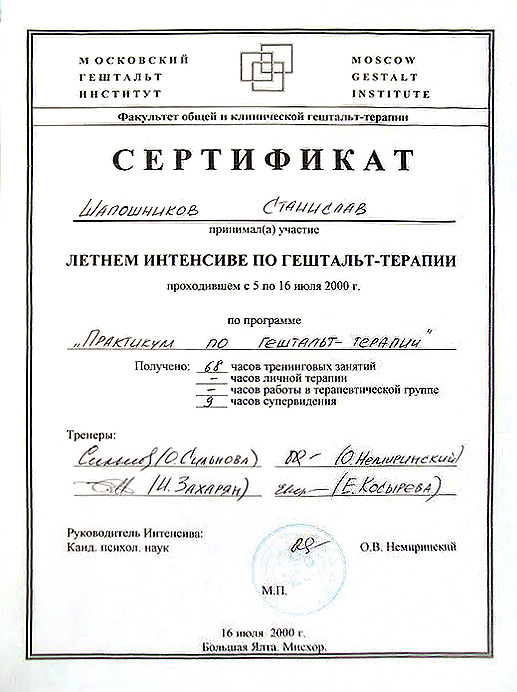 МОСКОВСКИЙ MOSCOW
ГЕШТАЛЬТ GESTALT
ИНСТИТУТ INSTITUTE
Факультет общей и клинической гештальт-терапии
СЕРТИФИКАТ
ШАПОШНИКОВ СТАНИСЛАВ
принимал(а) участие
ЛЕТНЕМ ИНТЕНСИВЕ ПО ГЕШТАЛЬТ-ТЕРАПИИ
проходившем с 5 по 16 июля 2000 г.
по программе
„ПРАКТИКУМ ПО ГЕШТАЛЬТ-ТЕРАПИИ"
Получено: 68 часов тренинговых занятий
– часов личной терапии
– часов работы в терапевтической группе
9 часов супервидения
Тренеры:
(О. СИЛЬНОВА) (О. НЕМИРИНСКИЙ)
(И. ЗАХАРЯН) (Е. КОСЫРЕВА)
Руководитель Интенсива:
Канд. психол. наук О.В. Немиринский
М.П.
16 июля 2000 г.
Большая Ялта. Мисхор.